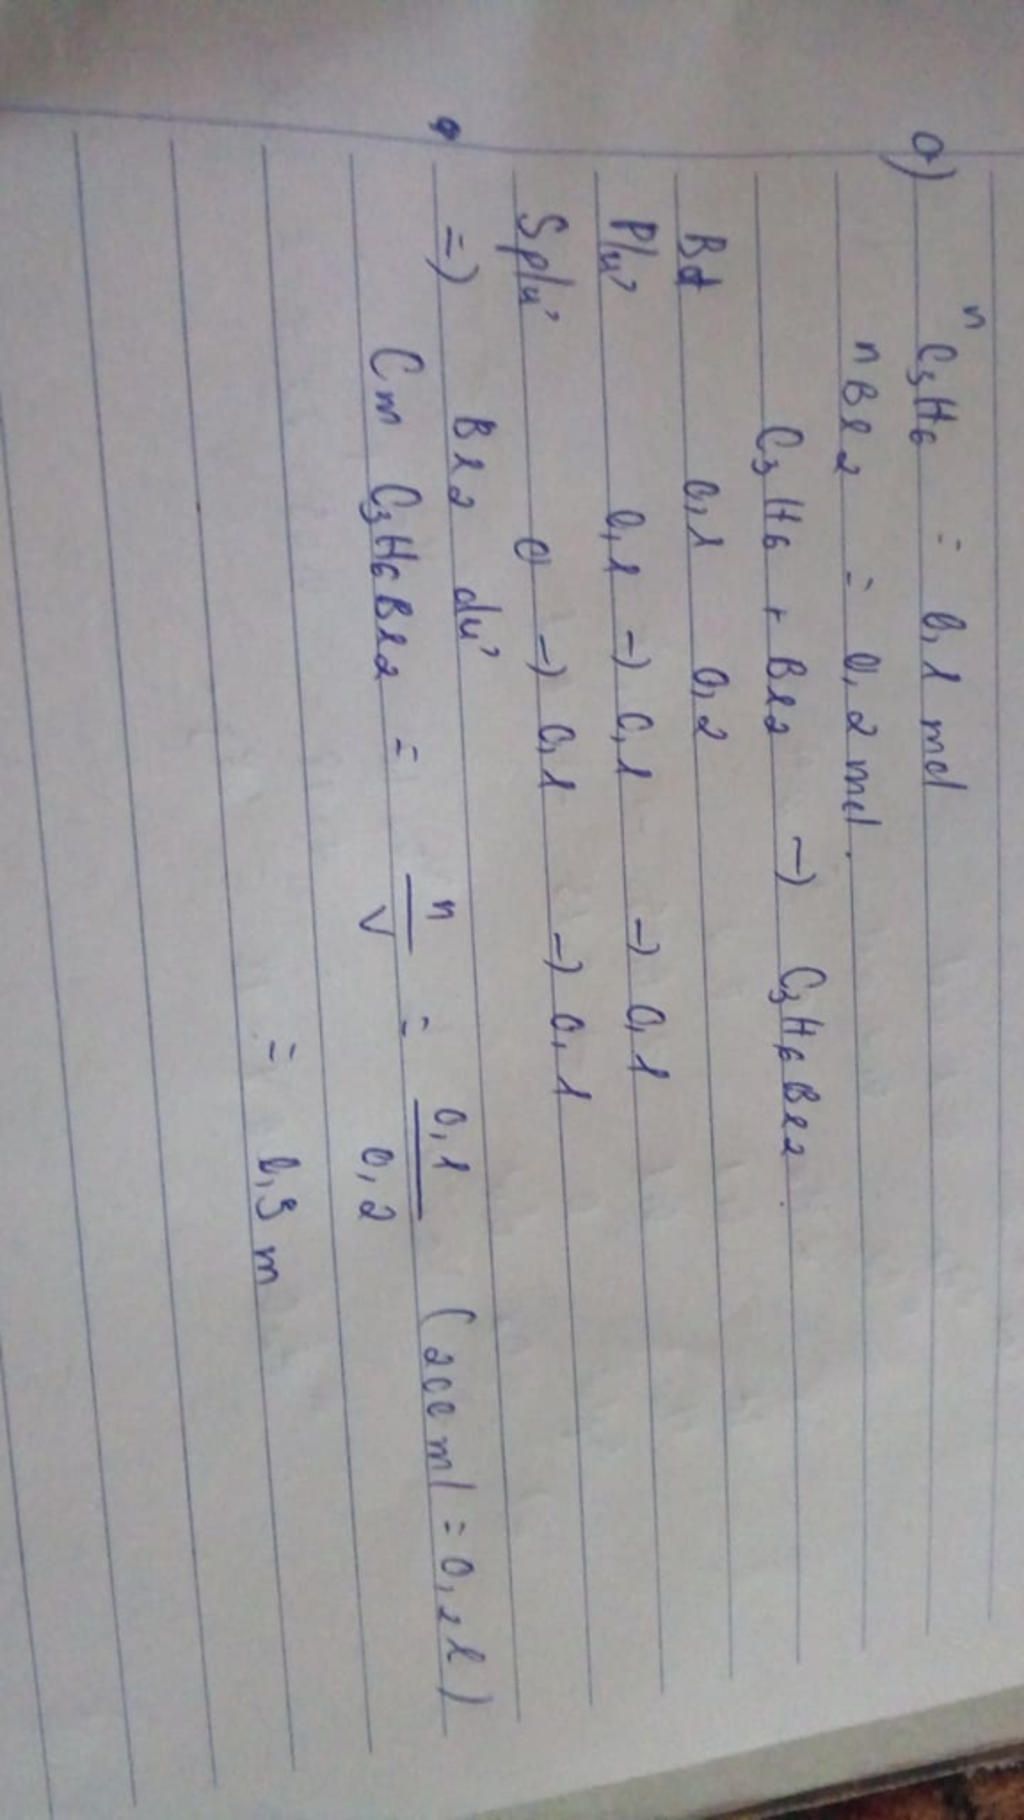 a) nC3H6 = 0,1 mol
nBr2 = 0,2 mol.
C3H6 + Br2 -> C3H6Br2
Bđ 0,1 0,2
P/ư 0,1 -> 0,1 -> 0,1
Sp/ư 0 -> 0,1 -> 0,1
=> Br2 dư
Cm C3H6Br2 = n/V = 0,1/0,2 (200ml = 0,2l)
= 0,5 m